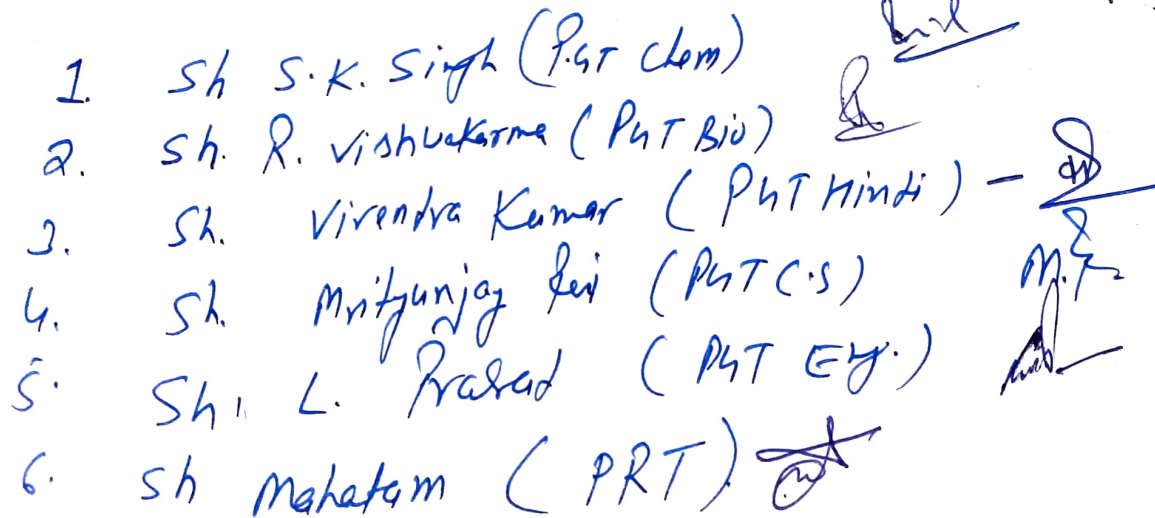 1. Sh S.K. Singh (PGT Chem)
2. Sh. R. Vishwakarma (PGT Bio)
3. Sh. Virendra Kumar (PGT Hindi) -
4. Sh. Mrityunjay Rai (PGT C.S)
5. Sh. L. Prasad (PGT Eng.)
6. Sh Mahatam (PRT)